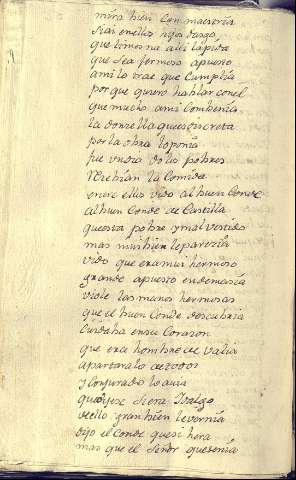 mira bien con maestria
si ay en ellos hijos dalgo
que limosna alli la pida
que sea fermoso apuesto
ami lo trae que cumplia
por que quiero hablar con el
que mucho ami conbenia
la donzella que es discreta
por la obra lo ponia
fue vndia do los pobres
recebian la comida
entre ellos vido al buen Conde
al buen Conde de Castilla
questa pobre y mal vestido
mas mui bien le pareçia
vido que era mui hermoso
grande apuesto en demasia
viole las manos hermosas
que el buen Conde descubria
cuidaba en su corazon
que era hombre de valia
apartaralo de todos
y conjurado lo avia
que dixese si era Idalgo
dello gran bien le vernia
dijo el Conde que si hera
mas que el señor que tenia